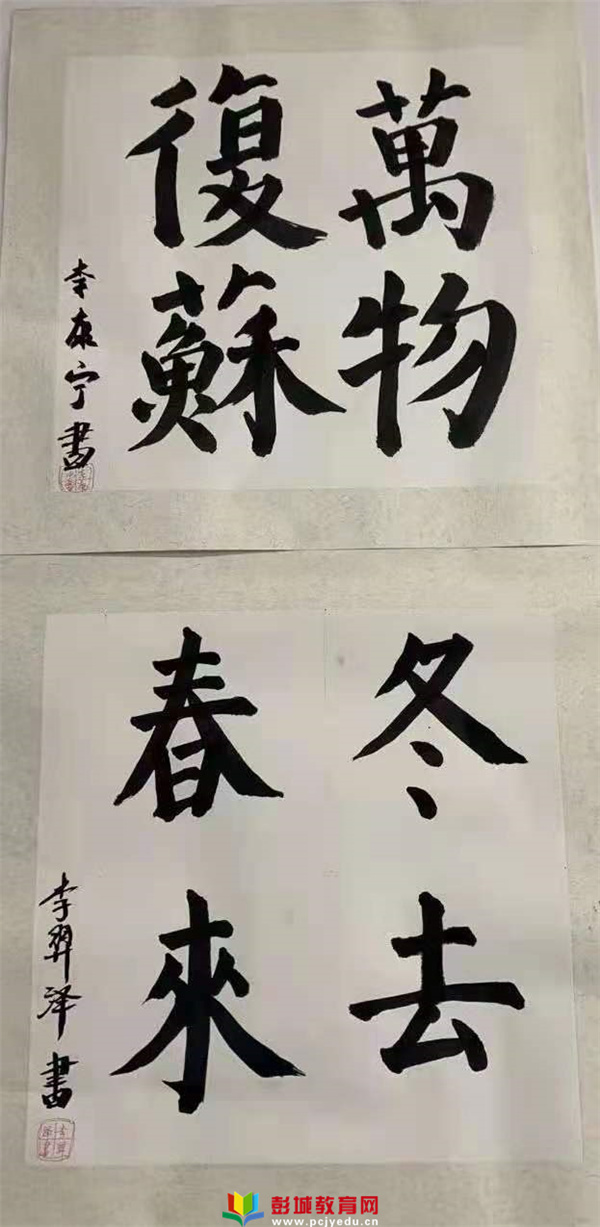 萬物
復蘇
李康宁書
冬去
春來
李羿泽書
彭城教育网
www.pcjyedu.cn